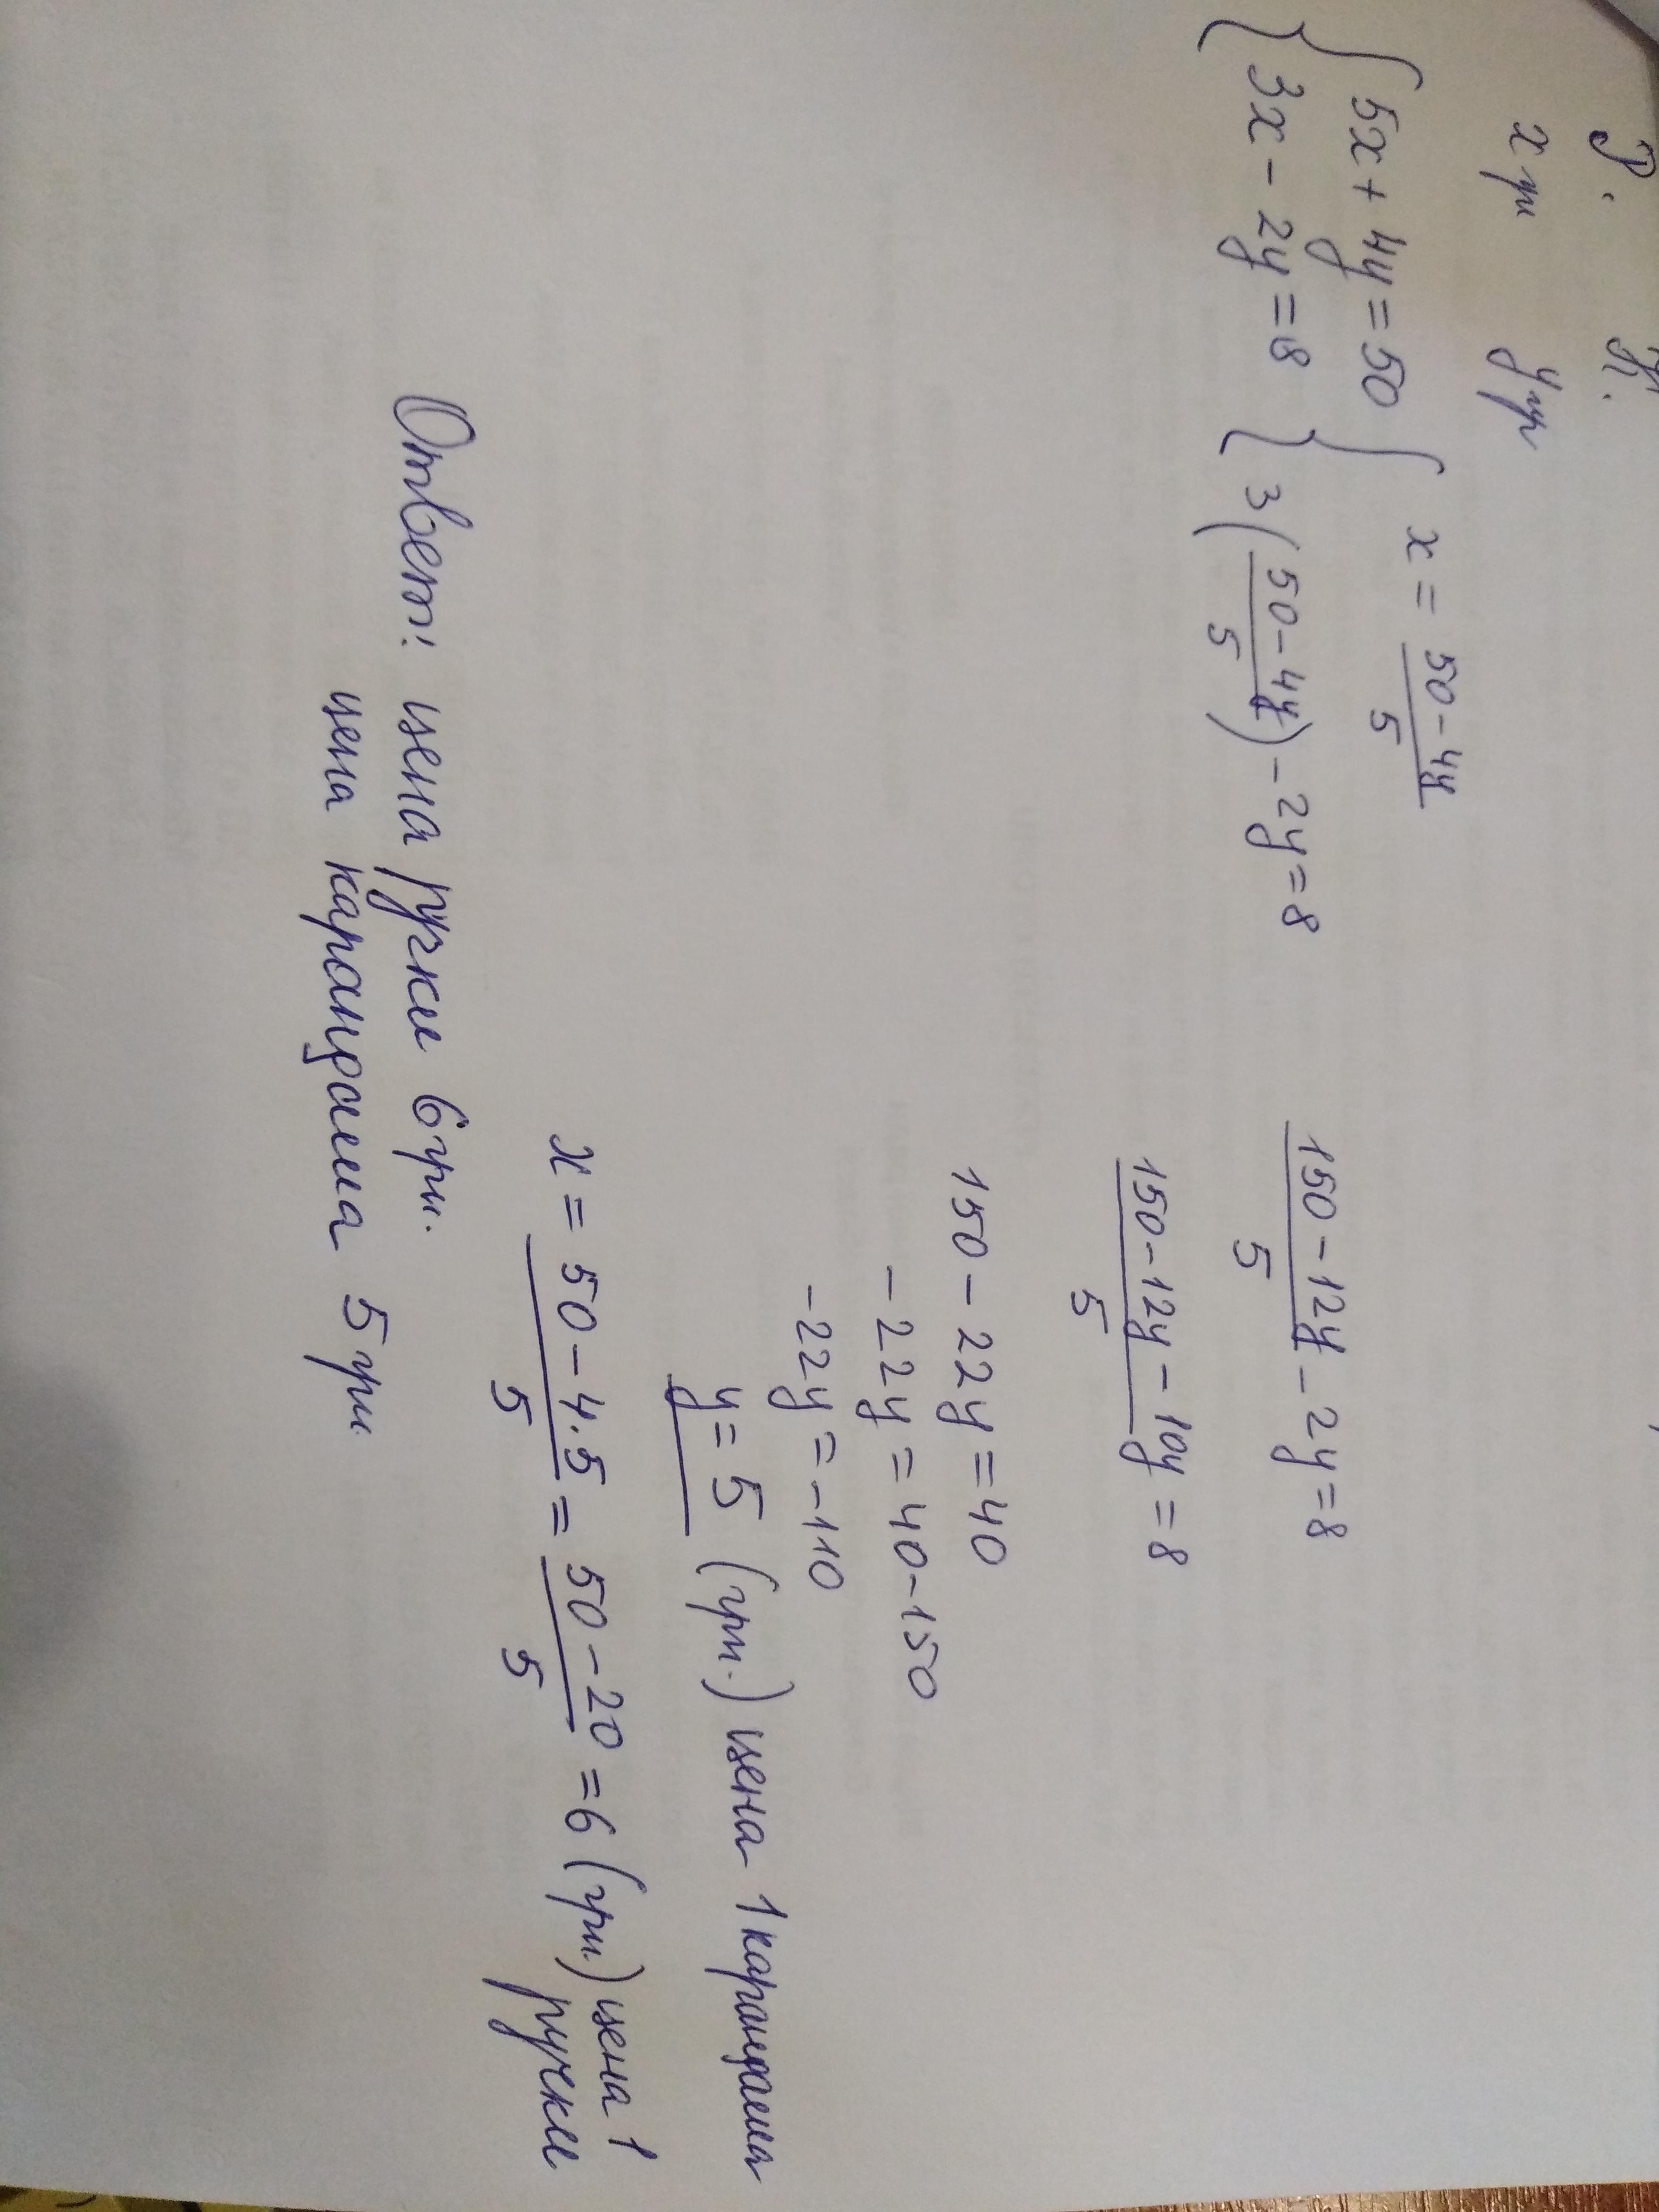 Р. К.
x гр y гр
{ 5x + 4y = 50 { x = (50-4y)/5
{ 3x - 2y = 8 { 3((50-4y)/5) - 2y = 8
(150-12y)/5 - 2y = 8
(150-12y-10y)/5 = 8
150 - 22y = 40
-22y = 40-150
-22y = -110
y = 5 (грн.) цена 1 карандаша
x = (50-4·5)/5 = (50-20)/5 = 6 (грн.) цена 1
ручки
Ответ: цена ручки 6 грн.
цена карандаша 5 грн.